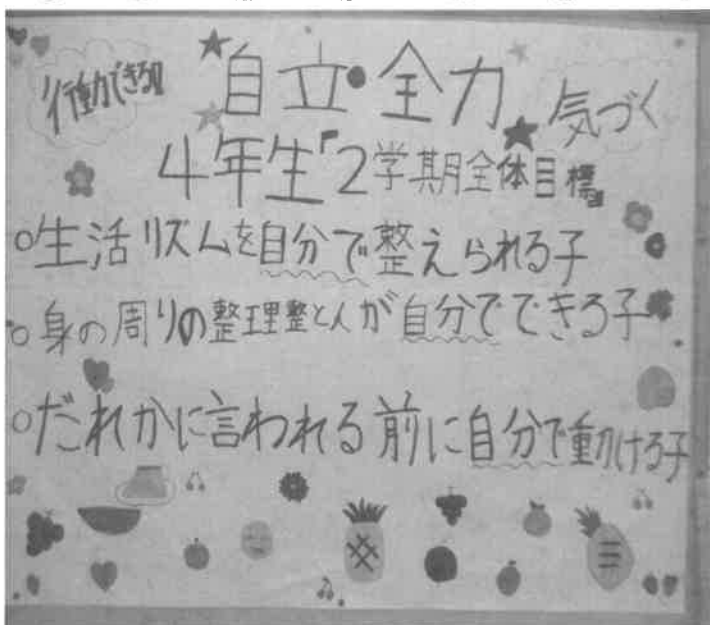 行動できる!!
自立・全力
気づく
4年生「2学期全体目標」
○生活リズムを自分で整えられる子
○身の周りの整理整とんが自分でできる子
○だれかに言われる前に自分で動ける子